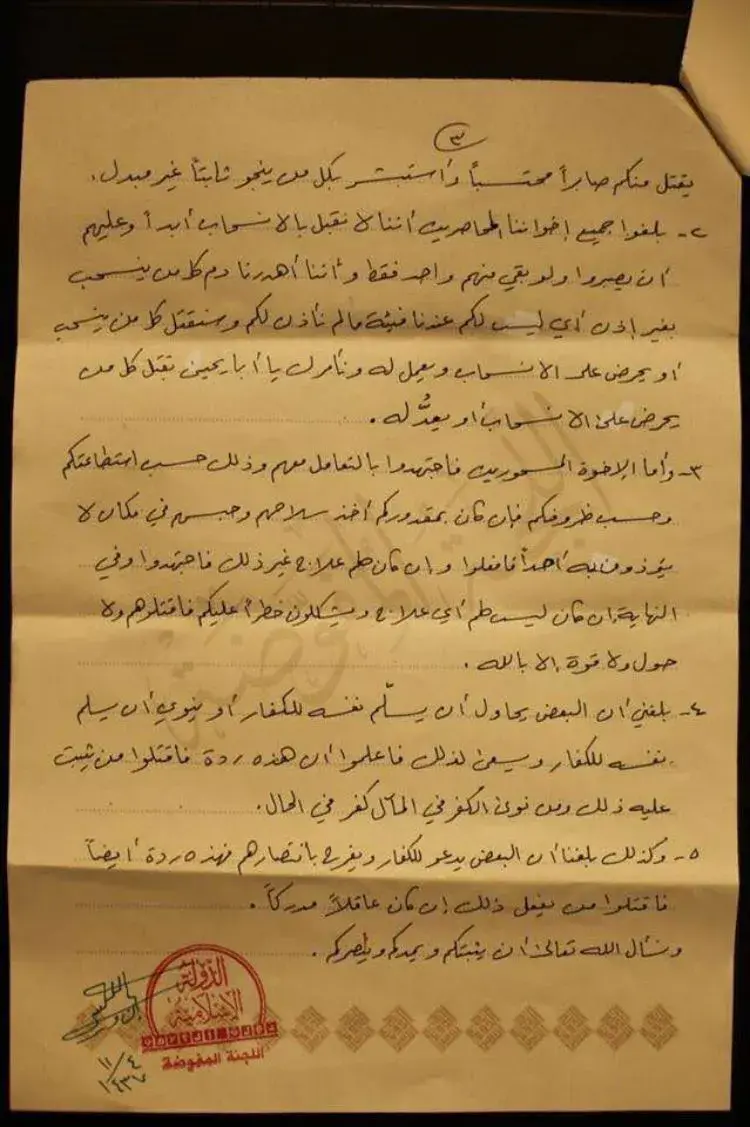 ٣
يقتل منكم صابراً محتسباً وأستبشر بكل من ينجو ثابتاً غير مبدل.
٢- بلغوا جميع إخواننا المحاصرين أننا لا نقبل بالانسحاب أبداً وعليهم
أن يصبروا ولو بقي منهم واحد فقط وأننا أهدرنا دم كل من ينسحب
بغير إذن أي ليست لكم عندنا فيئة مالم نأذن لكم وسنقتل كل من ينسحب
أو يحرض على الانسحاب ويعمل له ونأمرك يا أبا يحيى بقتل كل من
يحرض على الانسحاب أو يعدُّ له.
٣- وأما الإخوة المسحورين فاجتهدوا بالتعامل معهم وذلك حسب استطاعتكم
وحسب ظروفكم فإن كان بمقدوركم أخذ سلاحهم وحبسهم في مكان لا
يؤذون به أحداً فافعلوا وإن كان لهم علاج غير ذلك فاجتهدوا وفي
النهاية إن كان ليست لهم أي علاج ويشكلون خطراً عليكم فاقتلوهم ولا
حول ولا قوة إلا بالله.
٤- بلغني أن البعض يحاول أن يسلّم نفسه للكفار أو ينوي أن يسلم
نفسه للكفار ويسعى لذلك فاعلموا أن هذه ردة فاقتلوا من يثبت
عليه ذلك ومن نوى الكفر في المآل كفر في الحال.
٥- وكذلك بلغنا أن البعض يدعو للكفار ويفرح بانتصارهم فهذه ردة أيضاً
فاقتلوا من يفعل ذلك إن كان عاقلاً مدركاً.
ونسأل الله تعالى أن يثبتكم ويمدكم وينصركم.
الدولة
الإسلامية
اللجنة المفوضة
اللجنة المفوضة